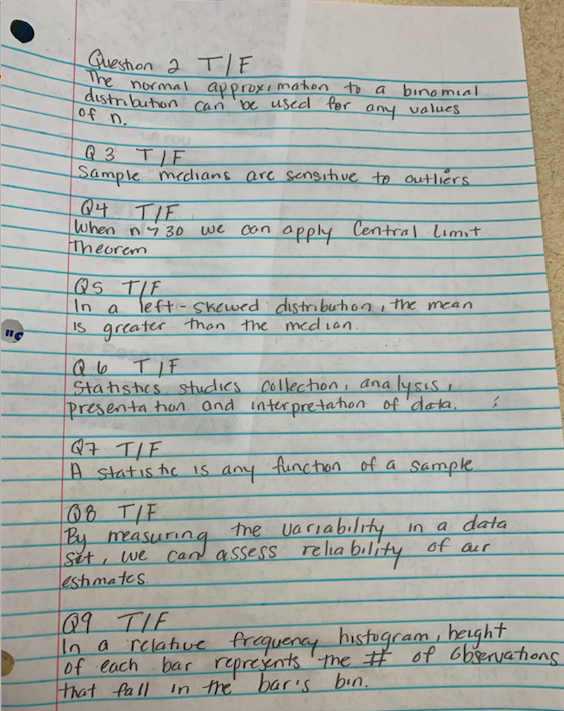 Question 2 T/F
The normal approximation to a binomial
distribution can be used for any values
of n.
Q3 T/F
Sample medians are sensitive to outliers
Q4 T/F
When n > 30 we can apply Central Limit
Theorem
Q5 T/F
In a left-skewed distribution, the mean
is greater than the median.
Q6 T/F
Statistics studies collection, analysis,
presentation and interpretation of data.
Q7 T/F
A statistic is any function of a sample
Q8 T/F
By measuring the variability in a data
set, we can assess reliability of our
estimates.
Q9 T/F
In a relative frequency histogram, height
of each bar represents the # of observations
that fall in the bar's bin.